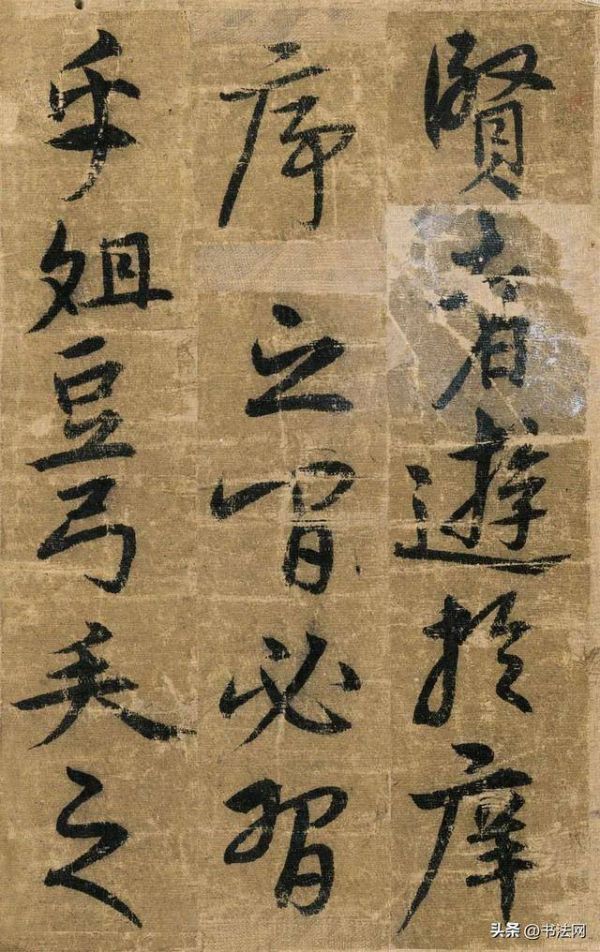 賢者遊於庠
序之間必習
乎俎豆弓矢之
头条@书法网